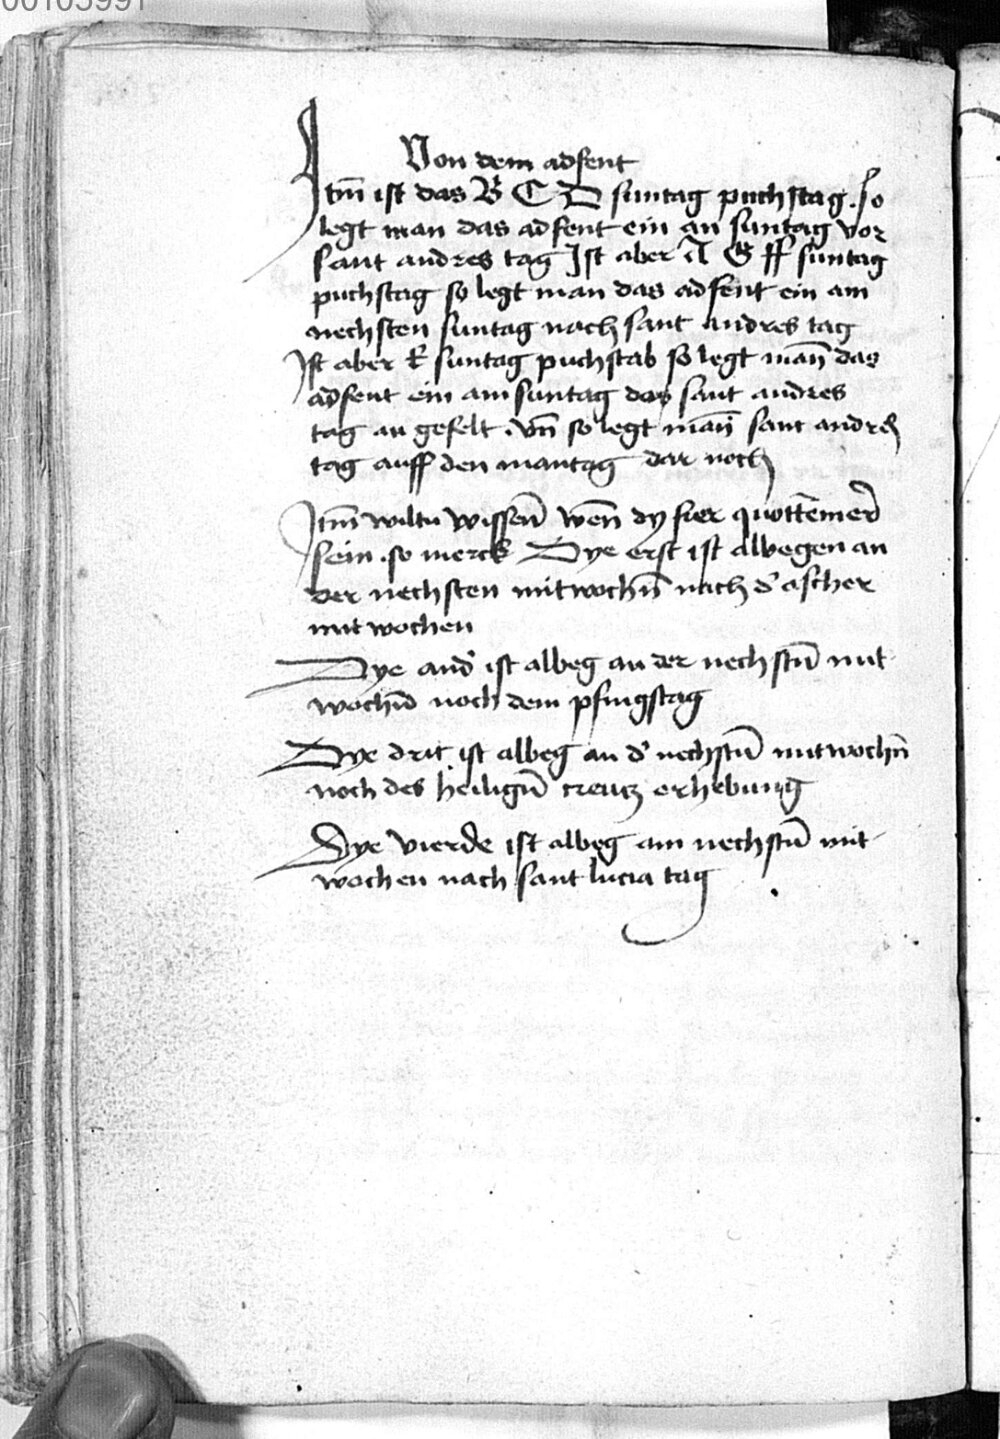 00103991
Von dem adfent
Itm̄ ist das B C D suntag puchstag . so
legt man das adfent ein an suntag vor
sant andres tag Ist aber A G ff suntag
puchstag so legt man das adfent ein am
nechsten suntag nach sant andres tag
Ist aber E suntag puchstab so legt man̄ das
adfent ein am suntag das sant andres
tag an gefelt . vn̄ so legt man̄ sant andres
tag auff den mantag dar noch
Itm̄ wiltu wissen̄ wen̄ dy fier quottemer
sein . so merck Dye erst ist albegen an
der nechsten mitwochn̄ nach d' ascher
mitwochen
Dye and' ist albeg an der nechstn̄ mit
wochn̄ noch dem pfingstag
Dye drit ist albeg an d' nechstn̄ mitwochn̄
noch des heilign̄ creutz erhebung
Dye vierde ist albeg am nechstn̄ mit
wochen nach sant lucia tag